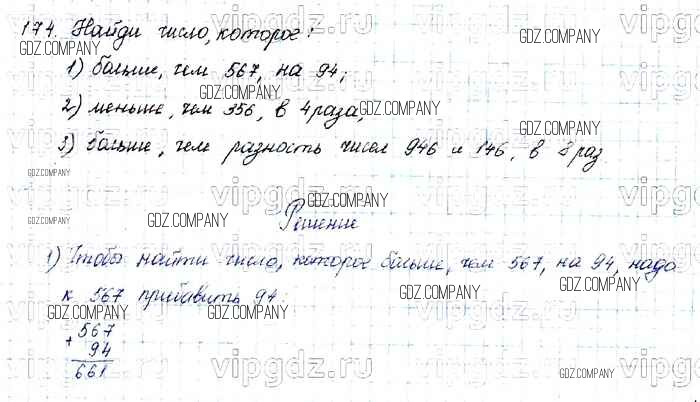 174. Найди число, которое:
1) больше, чем 567, на 94;
2) меньше, чем 356, в 4 раза;
3) больше, чем разность чисел 946 и 146, в 8 раз.
Решение
1) Чтобы найти число, которое больше, чем 567, на 94, надо
к 567 прибавить 94:
+ 567
94
661
GDZ.COMPANY
vipgdz.ru